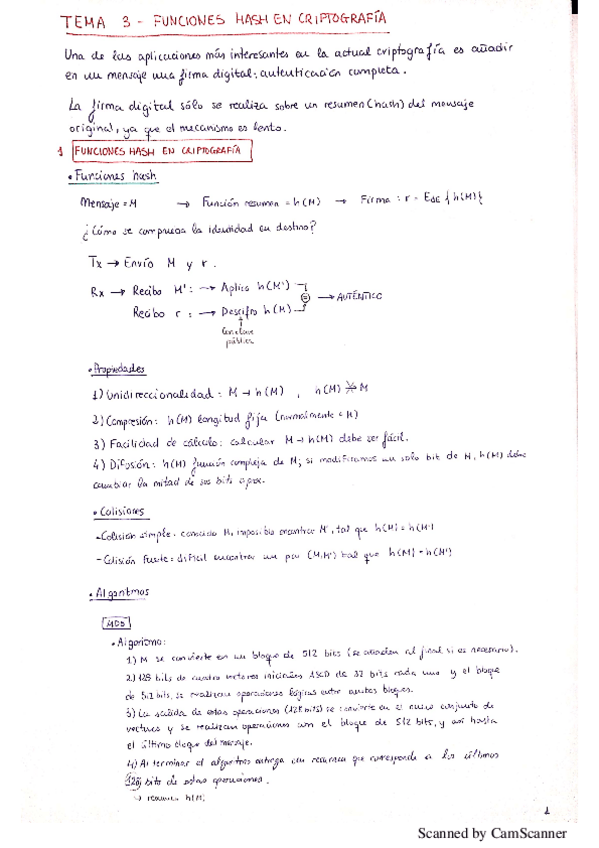 TEMA 3 - FUNCIONES HASH EN CRIPTOGRAFÍA
Una de las aplicaciones más interesantes en la actual criptografía es añadir
en un mensaje una firma digital: autenticación completa.
La firma digital sólo se realiza sobre un resumen (hash) del mensaje
original, ya que el mecanismo es lento.
1 FUNCIONES HASH EN CRIPTOGRAFÍA
• Funciones hash
Mensaje = M → Función resumen = h(M) → Firma: r = EdE {h(M)}
¿Cómo se comprueba la identidad en destino?
Tx → Envío M y r.
Rx → Recibo M': → Aplico h(M')
= → AUTÉNTICO
Recibo r: → Descifro h(M)
con clave
pública
• Propiedades
1) Unidireccionalidad: M → h(M) , h(M) M
2) Compresión: h(M) longitud fija (normalmente < M)
3) Facilidad de cálculo: calcular M → h(M) debe ser fácil.
4) Difusión: h(M) función compleja de M; si modificamos un solo bit de M, h(M) debe
cambiar la mitad de sus bits aprox.
• Colisiones
- Colisión simple: conocido M, imposible encontrar M', tal que h(M) = h(M')
- Colisión fuerte: difícil encontrar un par (M,M') tal que h(M) = h(M')
• Algoritmos
MD5
• Algorismo:
1) M se convierte en un bloque de 512 bits (se añaden al final si es necesario).
2) 128 bits de cuatro vectores iniciales ABCD de 32 bits cada uno y el bloque
de 512 bits, se realizan operaciones lógicas entre ambos bloques.
3) La salida de estas operaciones (128 bits) se convierte en el nuevo conjunto de
vectores y se realizan operaciones con el bloque de 512 bits, y así hasta
el último bloque del mensaje.
4) Al terminar el algoritmo entrega un resumen que corresponde a los últimos
128 bits de estas operaciones.
→ resumen h(M)
1
Scanned by CamScanner